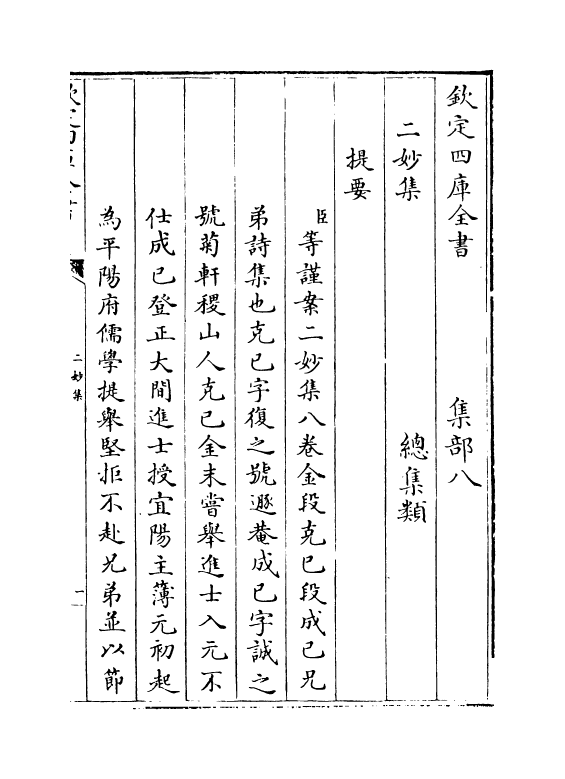 欽定四庫全書　集部八
二妙集　總集類
提要
臣等謹案二妙集八卷金段克已段成已兄
弟詩集也克已字復之號遯菴成已字誠之
號菊軒稷山人克已金末嘗舉進士入元不
仕成已登正大間進士授宜陽主簿元初起
為平陽府儒學提舉堅拒不赴兄弟並以節
欽定四庫全書
二妙集
一